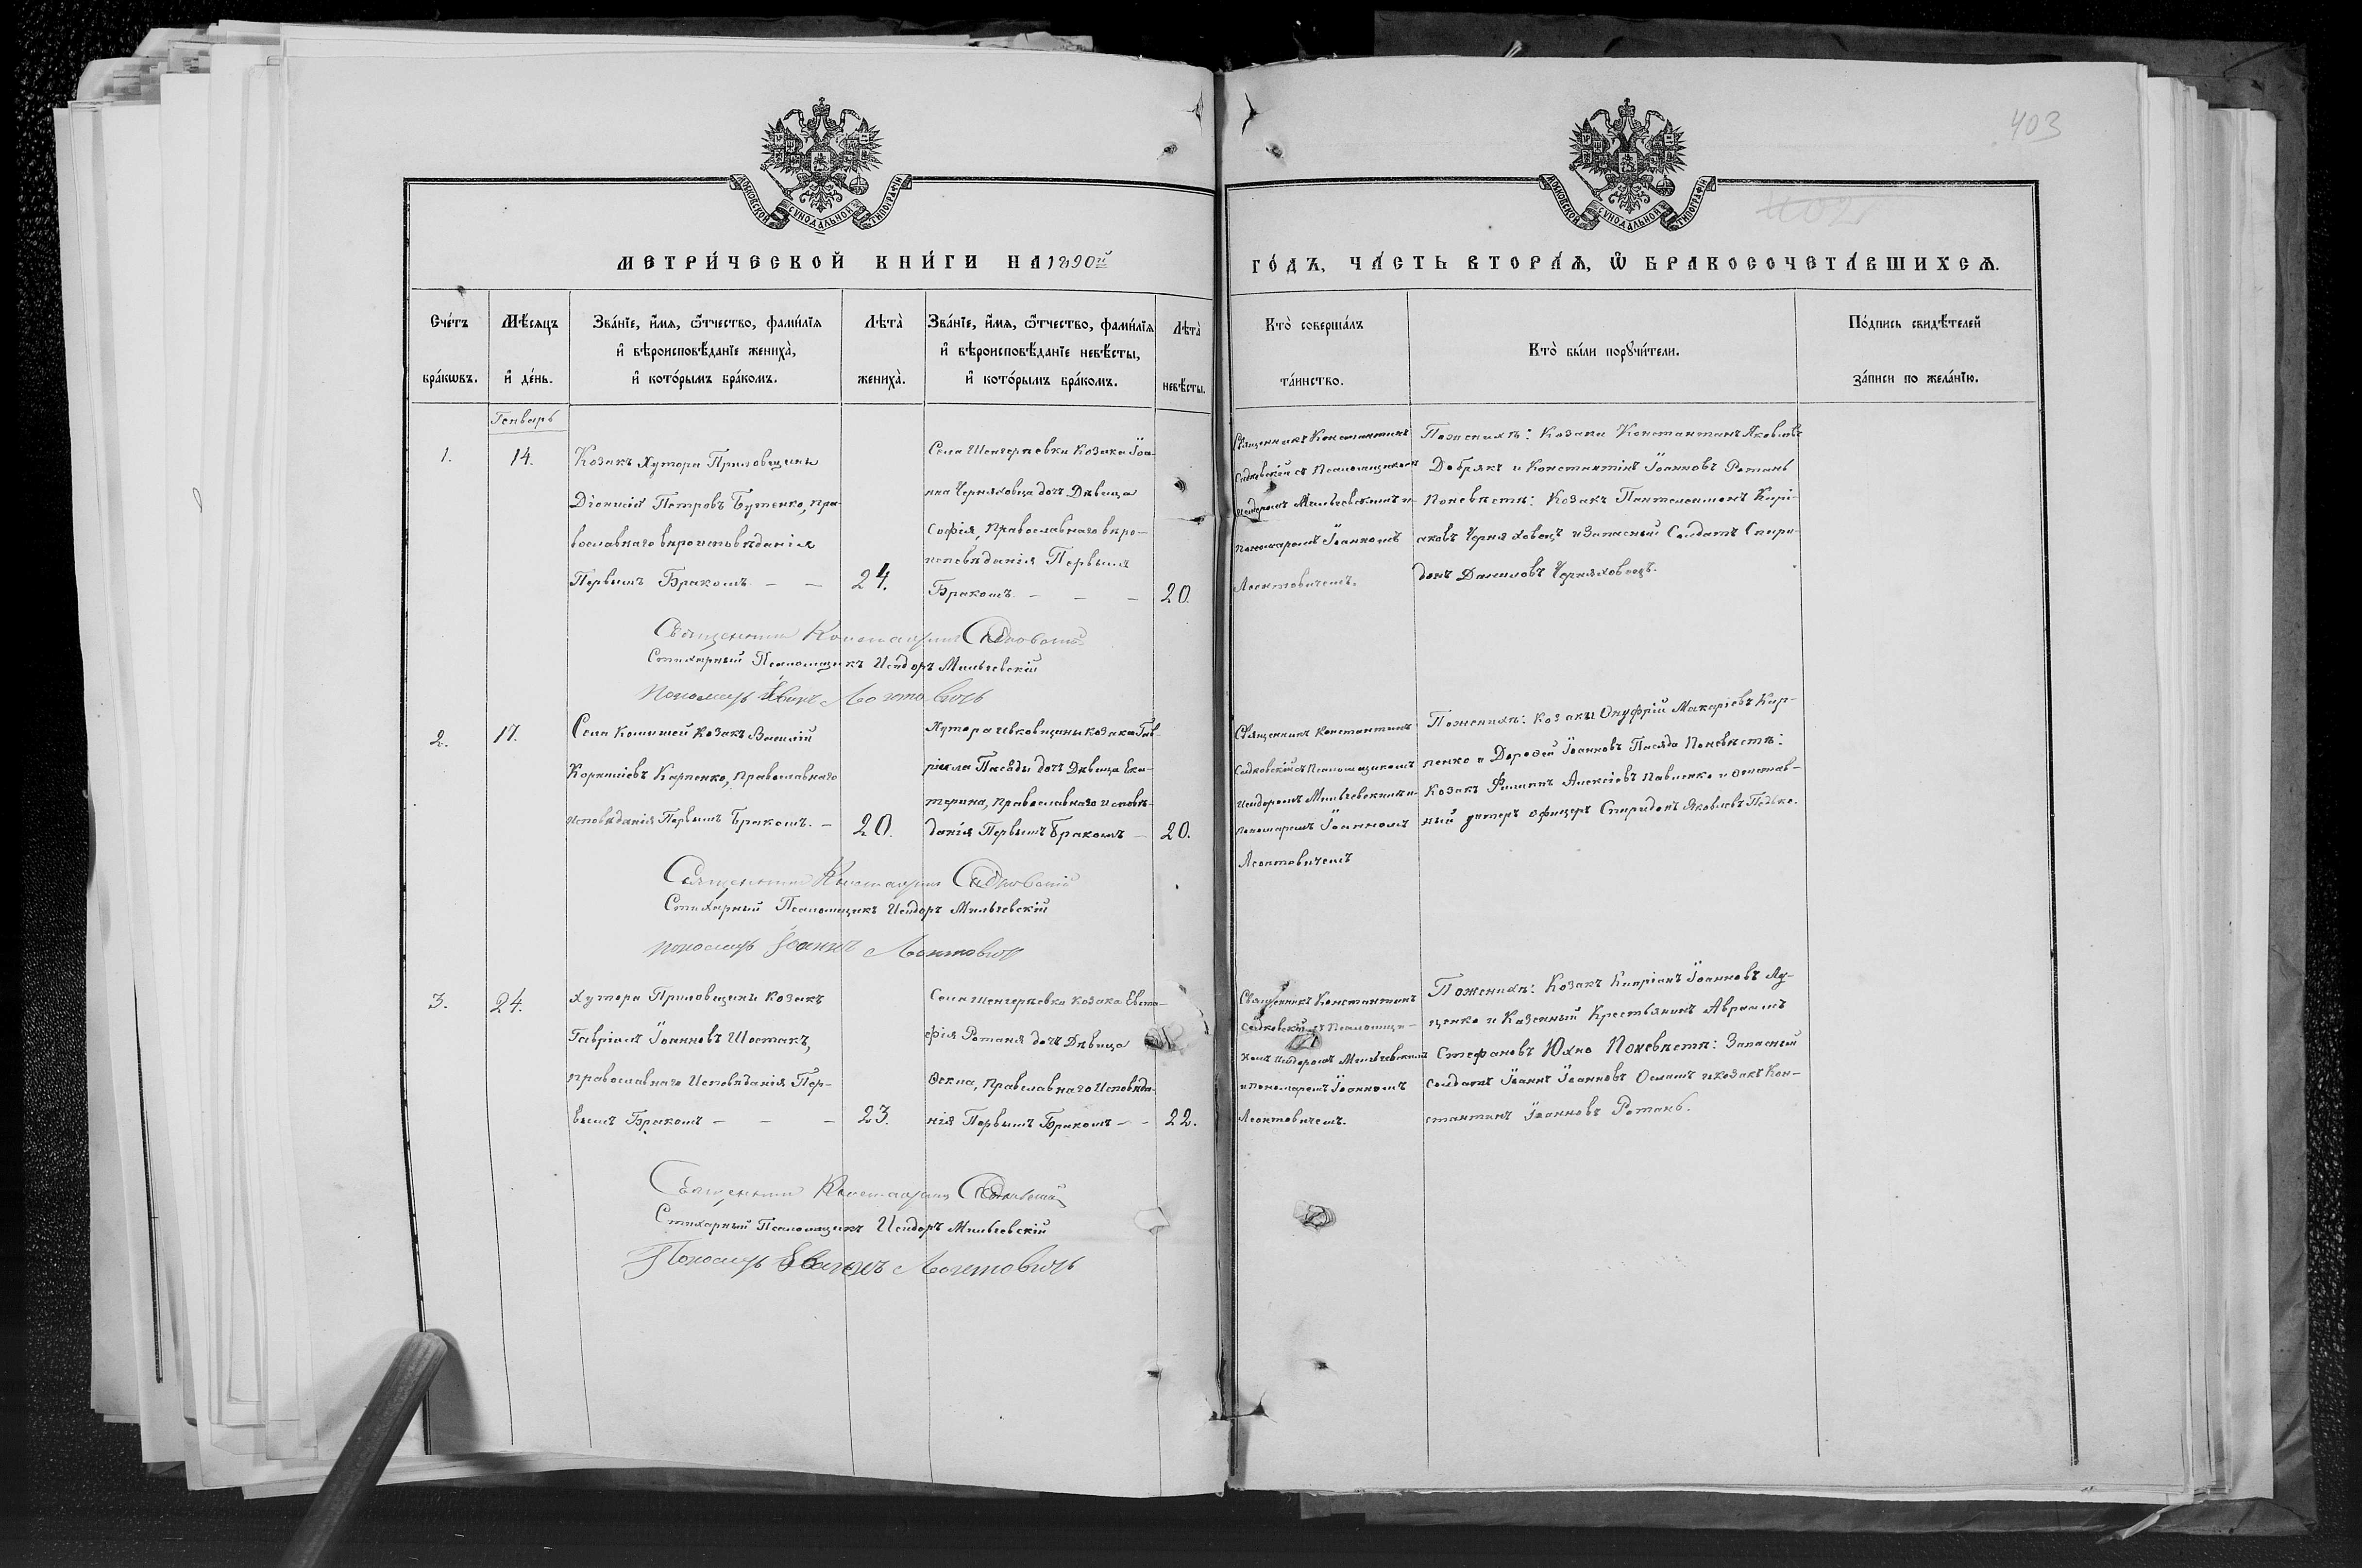 403
МОСКОВСКОЙ СѴНОДАЛЬНОЙ ТИПОГРАФІИ
МОСКОВСКОЙ СѴНОДАЛЬНОЙ ТИПОГРАФІИ
402
МЕТРИ́ЧЕСКОЙ КНИ́ГИ НА 1890й
ГО́ДЪ, ЧА́СТЬ ВТОРА́Ѧ, Ѽ БРАКОСОЧЕТА́ВШИХСѦ.
Сче́тъ бра́кѡвъ.
Мѣ́сяцъ и҆ де́нь.
Зва́нїе, и҆́мѧ, ѻ҆́тчество, фами́лїѧ
и҆ вѣроисповѣ́данїе жениха̀,
и҆ кото́рымъ бра́комъ.
Лѣта̀ жениха̀.
Зва́нїе, и҆́мѧ, ѻ҆́тчество, фами́лїѧ
и҆ вѣроисповѣ́данїе невѣ́сты,
и҆ кото́рымъ бра́комъ.
Лѣта̀ невѣ́сты.
Кто̀ соверша́лъ та́инство.
Кто̀ бы́ли порꙋчи́тели.
По́дпись свидѣ́телей за́писи по жела́нїю.
Генварь
1.
14.
Козакъ Хутора Приловщины
Діонисій Петровъ Бутенко, пра-
вославнаго вѣроисповѣданія
Первымъ Бракомъ. — —
24.
Села Шенгерѣевки Козака Іоа-
нна Черняховца дочь Дѣвица
Софія, Православнаго вѣро-
исповѣданія Первымъ
Бракомъ. — — —
20.
Священникъ Константинъ
Садковскій съ Псаломщикомъ
Исидоромъ Мильчевскимъ и
пономаремъ Іоанномъ
Леонтовичемъ.
Поженихѣ: Козаки Константинъ Яковлевъ
Добрякъ и Константинъ Іоанновъ Ротань
Поневѣстѣ: Козакъ Пантелеимонъ Кирі-
аковъ Черняховецъ и Запасный Солдатъ Спири-
донъ Даниловъ Черняховецъ.
Священникъ Константинъ Садковскій
Стихарный Псаломщикъ Исидоръ Мильчевскій
Пономарь Іоаннъ Леонтовичъ
2.
17.
Села Комишей Козакъ Василій
Корниліевъ Карпенко, Православнаго
исповѣданія Первымъ Бракомъ. —
20.
Хутора козака Гав-
ріила Пасѣды дочь Дѣвица Ека-
терина, православнаго исповѣ-
данія Первымъ Бракомъ —
20.
Священникъ Константинъ
Садковскій съ Псаломщикомъ
Исидоромъ Мильчевскимъ и
пономаремъ Іоанномъ
Леонтовичемъ
Поженихѣ: Козаки Онуфрій Макаріевъ Кар-
пенко и Дороѳей Іоанновъ Пасяда Поневѣстѣ:
Козакъ Филиппъ Алексіевъ Павленко и отстав-
ный унтеръ офицеръ Спиридонъ Яковлевъ Педько.
Священникъ Константинъ Садковскій
Стихарный Псаломщикъ Исидоръ Мильчевскій
пономарь Іоаннъ Леонтовичъ
3.
24.
Хутора Приловщины козакъ
Гавріилъ Іоанновъ Шостакъ,
православнаго Исповѣданія Пер-
вымъ Бракомъ — — —
23.
Села Шенгерѣевки козака Евста-
фія Ротаня дочь Дѣвица
Ѳекла, Православнаго Исповѣда-
нія Первымъ Бракомъ — —
22.
Священникъ Константинъ
Садковскій съ Псаломщи-
комъ Исидоромъ Мильчевскимъ
и пономаремъ Іоанномъ
Леонтовичемъ.
Поженихѣ: Козакъ Кипріанъ Іоанновъ Лу-
ценко и Казенный Крестьянинъ Авраамъ
Стефановъ Юхно Поневѣстѣ: Запасный
Солдатъ Іоаннъ Іоанновъ и козакъ Кон-
стантинъ Іоанновъ Ротань.
Священникъ Константинъ Садковскій
Стихарный Псаломщикъ Исидоръ Мильчевскій
Пономарь Іоаннъ Леонтовичъ